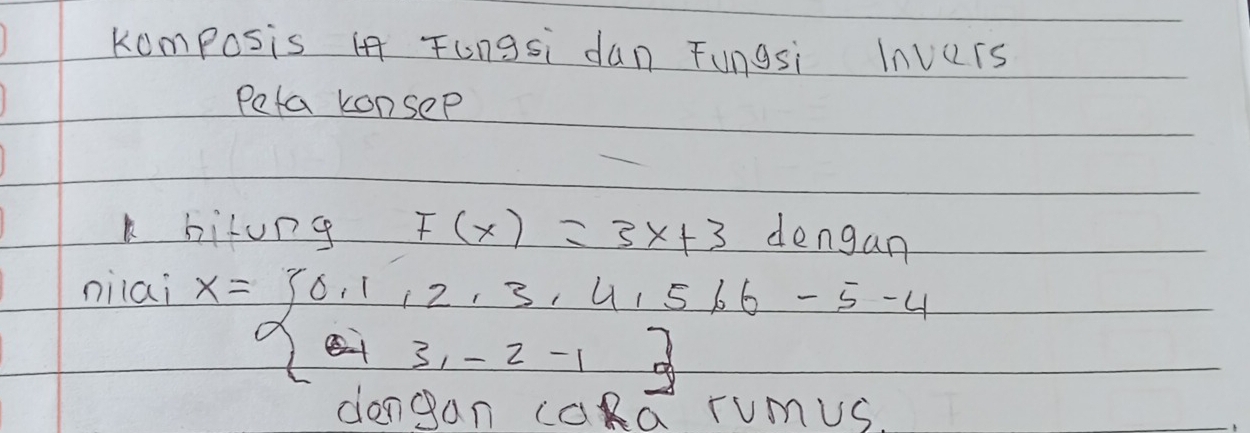 Komposis Fungsi dan Fungsi Invers
Peta konsep
hitung F(x) = 3x+3 dengan
nilai x = {0, 1, 2, 3, 4, 5, 6 - 5 - 4
3, - 2 - 1 }
dengan cara rumus.